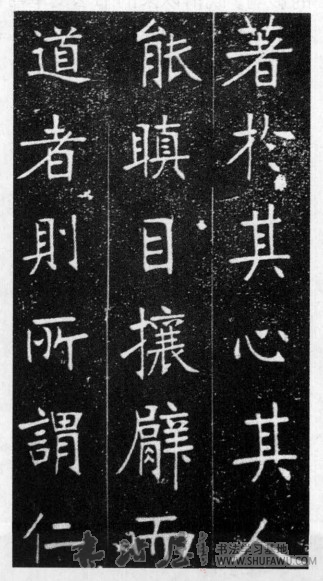 著於其心其人
能瞋目攘臂而
道者則所謂仁
书法学习基地
WWW.SHUFAWU.COM